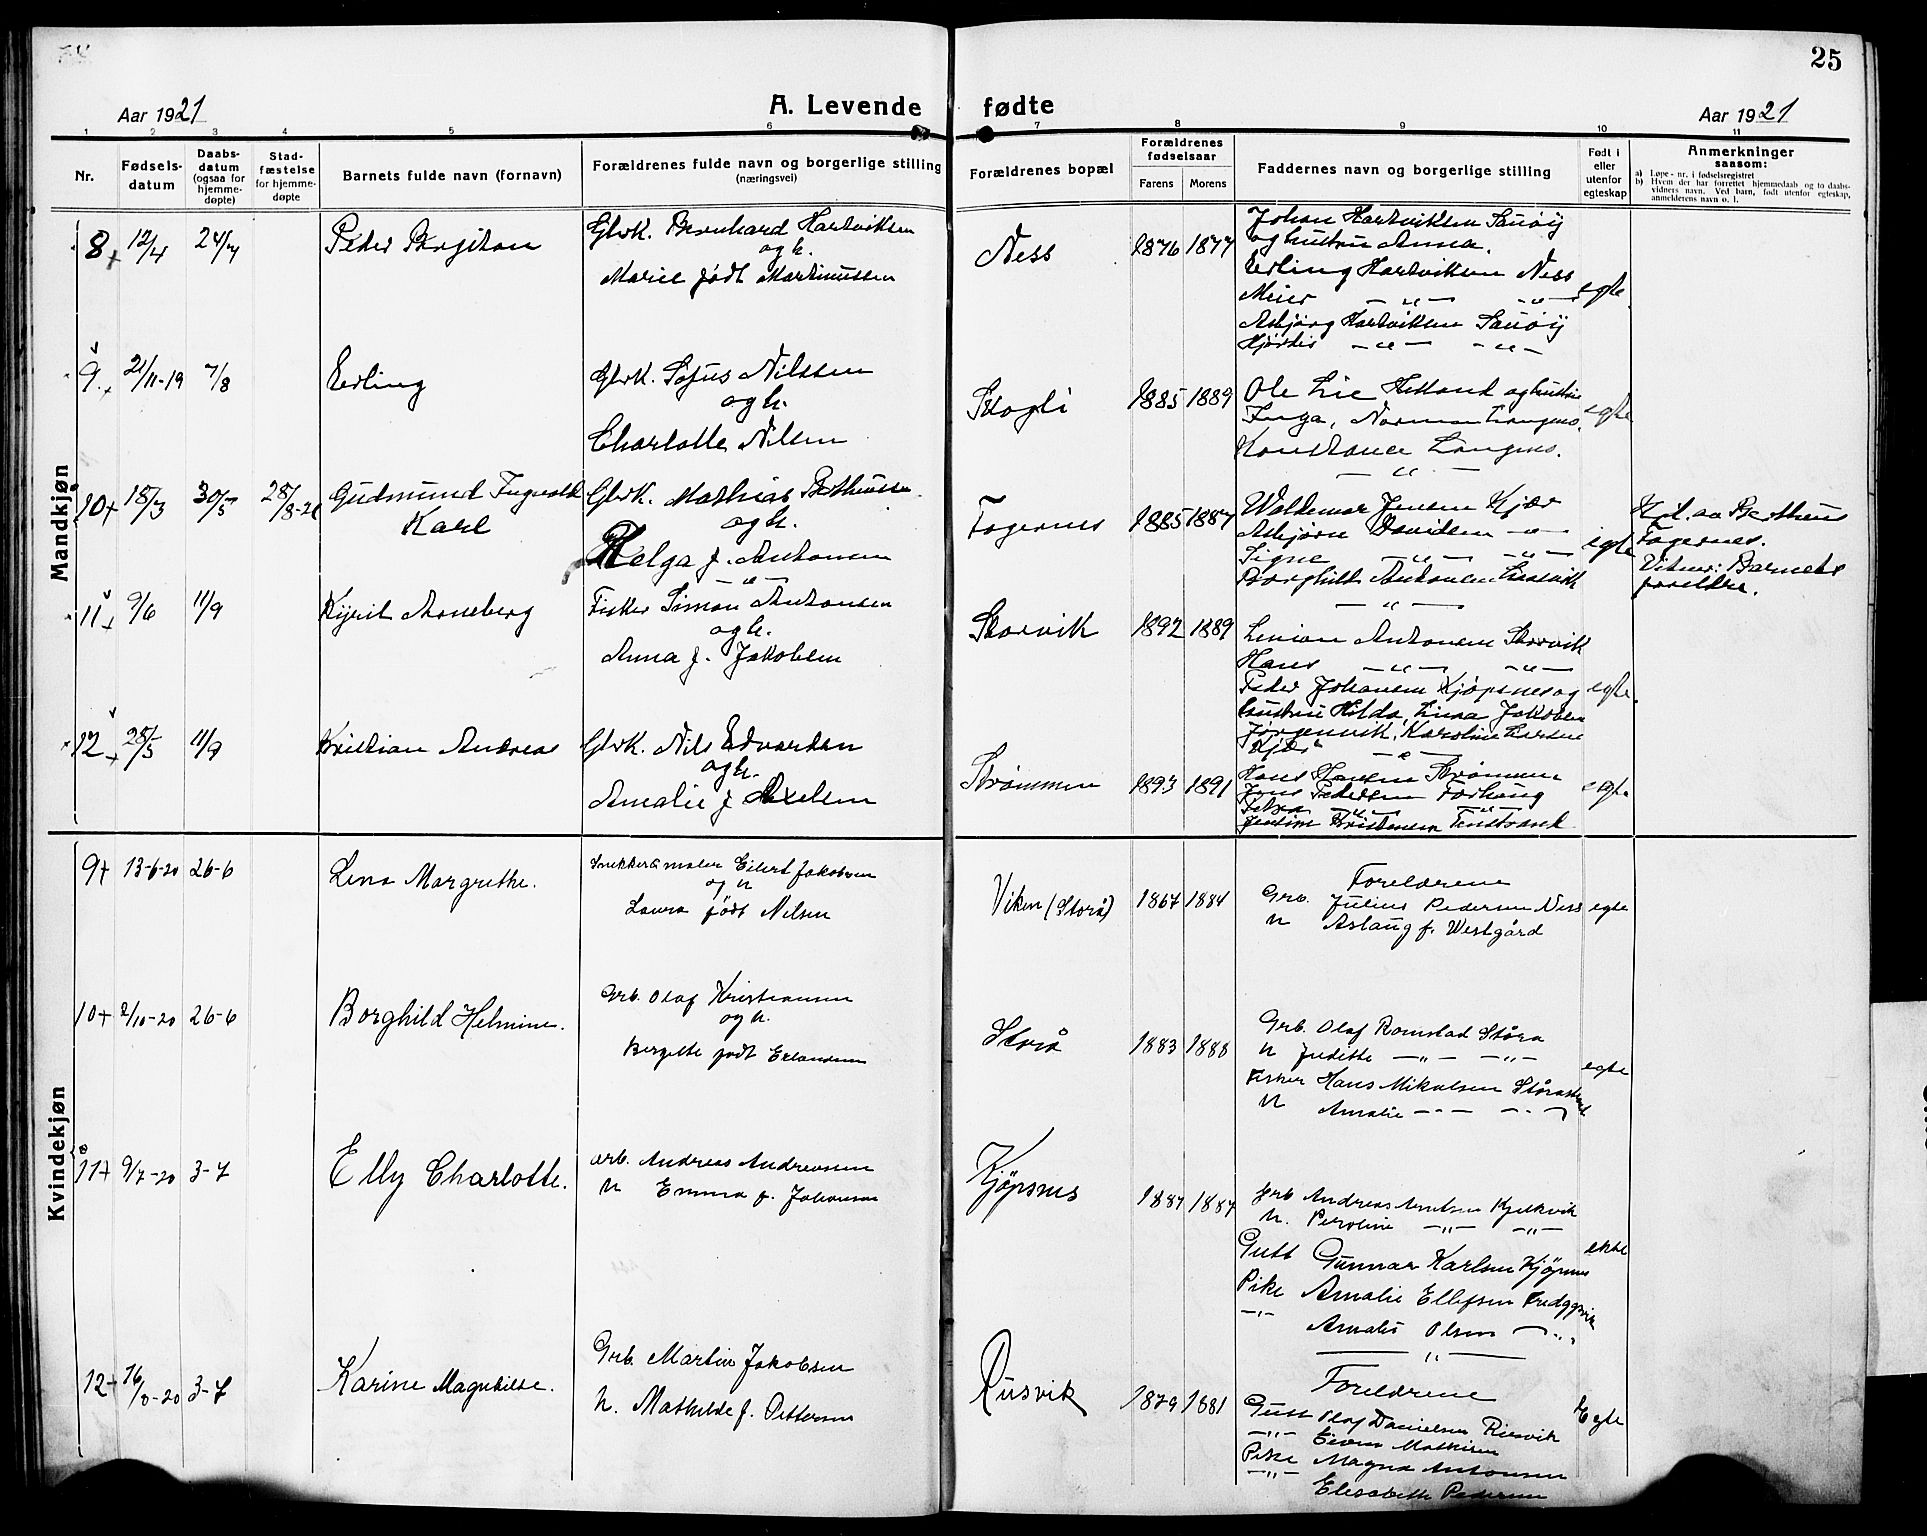 25
Aar 1921
A. Levende
fødte
Aar 1921
1 2 3 4 5 6 7 8 9 10 11
Nr.
Fødsels-
datum
Daabs-
datum
(ogsaa for
hjemme-
døpte)
Stad-
fæstelse
for hjemme-
døpte
Barnets fulde navn (fornavn)
Forældrenes fulde navn og borgerlige stilling
(næringsvei)
Forældrenes bopæl
Forældrenes
fødselsaar
Farens
Morens
Faddernes navn og borgerlige stilling
Født i
eller
utenfor
egteskap
Anmerkninger
saasom:
a) Løpe-nr. i fødselsregistret
b) Hvem der har forrettet hjemmedaab og to daabs-
vidners navn. Ved barn, født utenfor egteskap,
anmelderens navn o. l.
Mandkjøn
8 12/4 24/4 Peder
Gbrk. Bernhard Hartviksen
og h.
Marie født Martinussen
Ness 1876 1877
Johan Hartviksen Sauøy
og hustru Anna.
Erling Hartviksen Ness
Meier — " — — " —
Asbjørg Hartviksen Sauøy
Hjørdis — " — — " —
egte
9. 21/11-19 7/8 Erling
Gbrk. Sofus Nilssen
og h.
Charlotte Nilsen
Skogli 1885 1889
Ole Lie Hetland og hustru
Inga, Norman
egte
— " —
10 18/3 30/5 28/8-21 Gudmund Ingvald
Karl
Gbrk. Mathias Berthinussen
og h.
Helga f. Antonsen
— " —
Fagernes 1885 1887
Waldemar Jensen Kjær
Asbjørn Davidsen — " —
Signe — " — — " —
Borghild Antonsen
— " —
egte
H.d. av
Fagernes.
Vitner: Barnets
foreldre.
11 9/6 11/9 Arneberg
Fisker Simon Antonsen
og h.
Anna f. Jakobsen
Storvik 1892 1889
Antonsen Storvik
Hans — " — — " —
Peder Johansen Kjøpsnes og
hustru Hilda, Jakobsen
Jørgenvik, Karoline Larsen
Kjær
— " —
egte.
12 28/5 11/9 Kristian Andreas
Gbrk. Nils Edvardsen
og h.
Amalie f. Axelsen
Strømmen 1893 1891
Hans Hansen Strømmen
Jens Pedersen Forhaug
Petra — " — — " —
Kristensen
egte
Kvindekjøn
9 13-6-20 26-6 Lena Margrethe.
Snekker & maler Eilert Jakobsen
og h
Laura født Nilsen
Viken (Storå) 1867 1884
Foreldrene
Grb. Julius Pedersen Ness
h Aslaug f. Westgård
egte
10 2/10-20 26-6 Borghild Helmine.
Grb. Olaf Kristiansen
og h.
Bergitte født Erlandsen
Storå 1883 1888
Grb. Olaf Romstad Stårå
h Juditte — " — — " —
Fisker Hans Mikalsen
h Amalie — " — — " —
egte
11 9/7-20 3-7 Elly Charlotte.
Arb. Andreas Andreassen
h Emma f. Johansen
Kjøpsnes 1887 1887
Grb Andreas Arntsen Kjelkvik
h. Peroline — " — — " —
Gutt Gunnar Karlsen Kjöpsnes
Pike Amalie Ellefsen
— " — Amalie Olsen — " —
— " —
ekte
12 16/8-20 3-7 Karine Magnhilde.
Grb. Martin Jakobsen
h. Mathilde f. Pettersen
Rusvik 1879 1881
Foreldrene
Gutt Olaf Danielsen Riesvik
— " — Einar Mathisen
Pike Magna Antonsen
— " — Elisabeth Pedersen
Egte